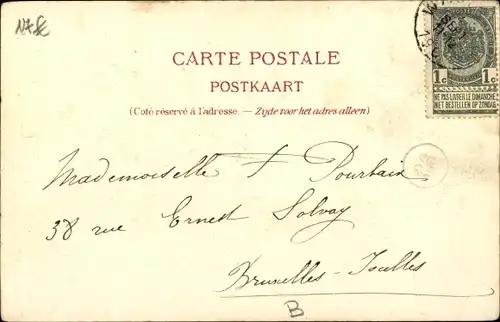 CARTE POSTALE
POSTKAART
(Coté réservé à l'adresse. — Zijde voor het adres alleen)
1c 1c
NE PAS LIVRER LE DIMANCHE
NIET BESTELLEN OP ZONDAG
Mademoiselle F Pourbaix
38 rue Ernest Solvay
Bruxelles - Ixelles
B